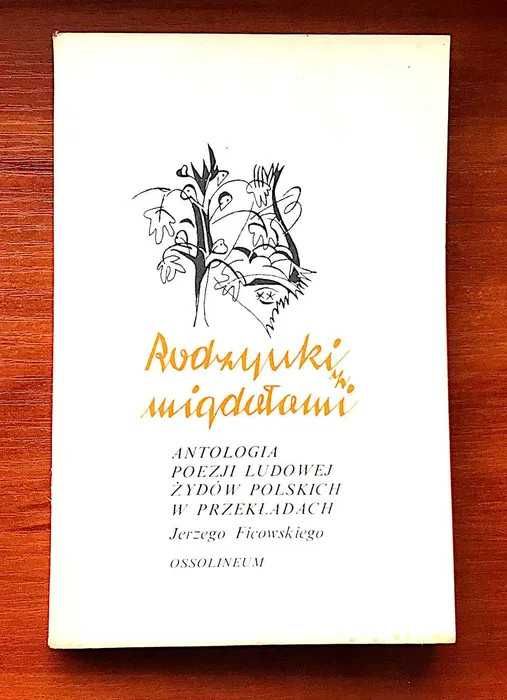 Rodzynki z
migdałami
ANTOLOGIA
POEZJI LUDOWEJ
ŻYDÓW POLSKICH
W PRZEKŁADACH
Jerzego Ficowskiego
OSSOLINEUM